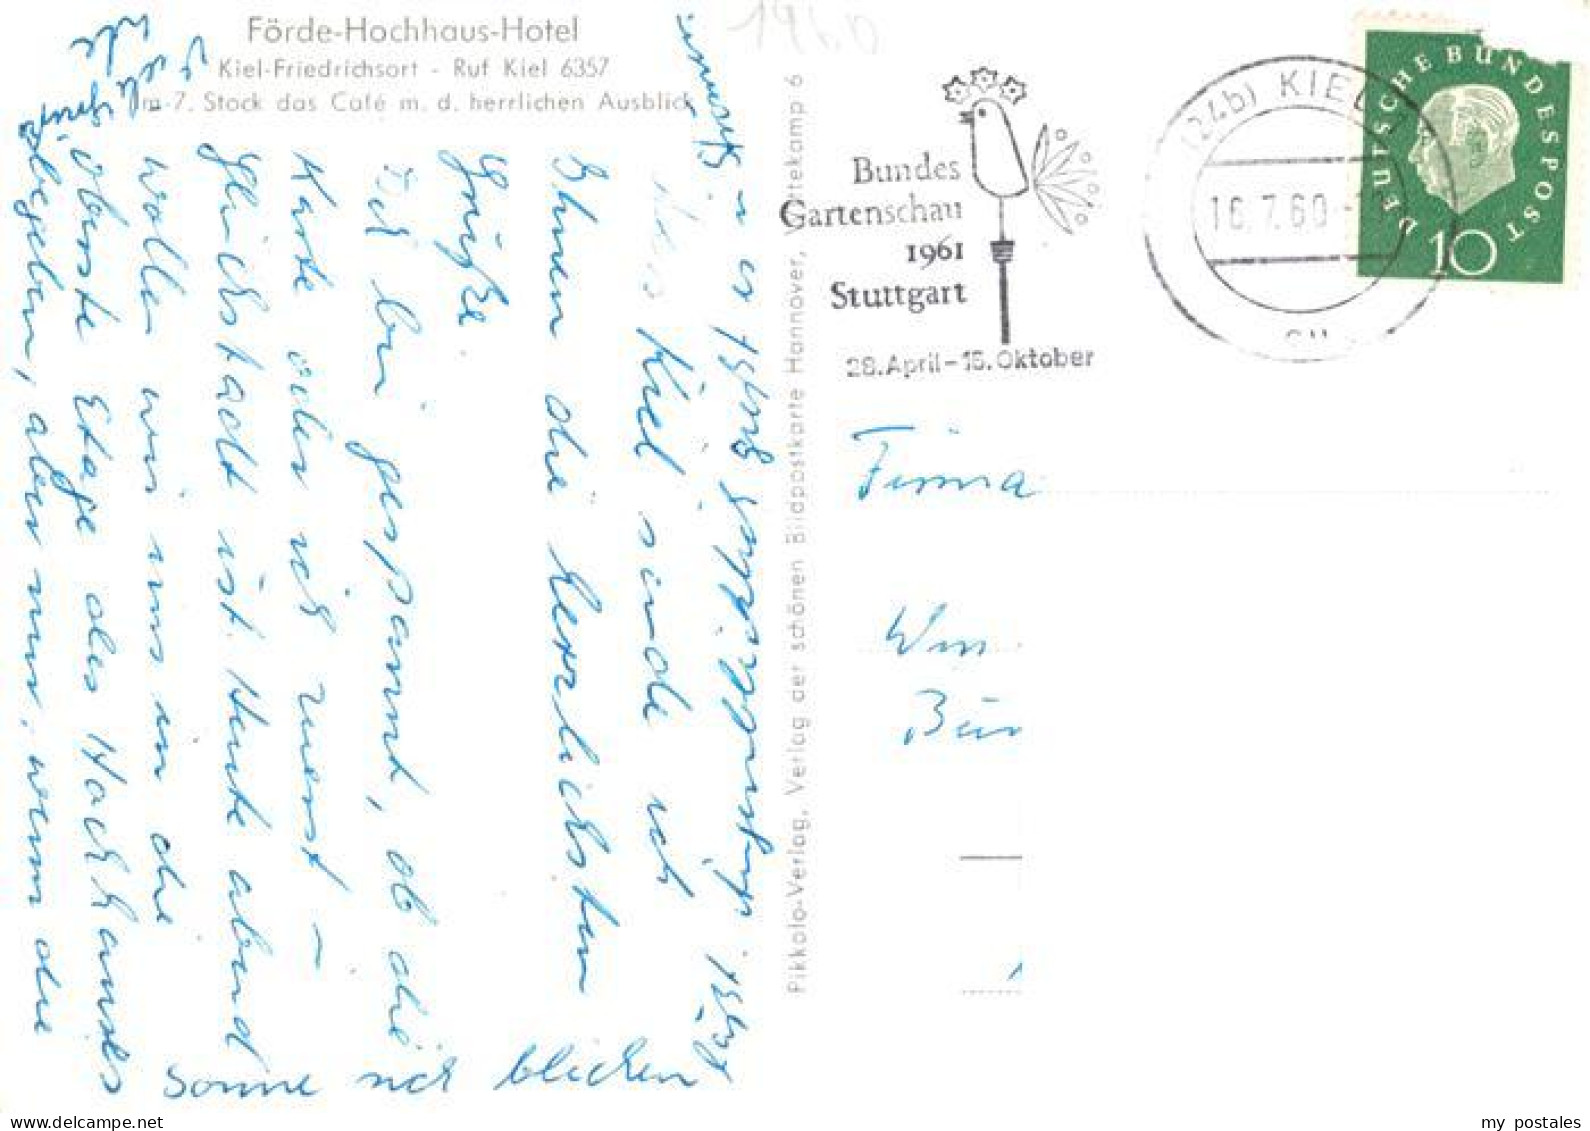 Förde-Hochhaus-Hotel
Kiel-Friedrichsort - Ruf Kiel 6357
Im 7. Stock das Café m. d. herrlichen Ausblick
1960
Aus Kiel sende ich
Ihnen die herzlichsten
Grüße.
Ich bin gespannt, ob die
Karte oder ich zuerst –
Glückstadt ist. Heute abend
wollen wir uns in die
oberste Etage des Hochhauses
begeben, aber nur, wenn die
Sonne sich blicken
läßt
Pikkolo-Verlag, Verlag der schönen Bildpostkarte Hannover, Wittekamp 6
Bundes
Gartenschau
1961
Stuttgart
28. April - 15. Oktober
(24b) KIEL
16.7.60
DEUTSCHE BUNDESPOST
10
Firma
my postales